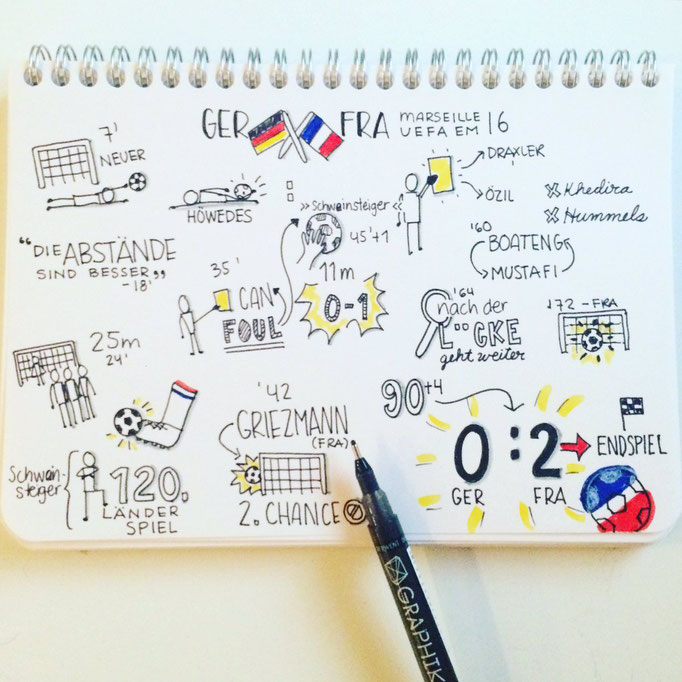 GER FRA MARSEILLE
UEFA EM 16
7'
NEUER
HÖWEDES
»Schweinsteiger«
45'+1
DRAXLER
ÖZIL
x Khedira
x Hummels
"DIE ABSTÄNDE
SIND BESSER"
-18'
'60
BOATENG
MUSTAFI
35'
CAN
FOUL
11m
0-1
'64
nach der
LÜCKE
geht weiter
'72 - FRA
25m
24'
'42
GRIEZMANN
(FRA)
2. CHANCE
Schwein-
steiger
120.
LÄNDER
SPIEL
90+4
0:2
GER FRA
ENDSPIEL
GRAPHIK